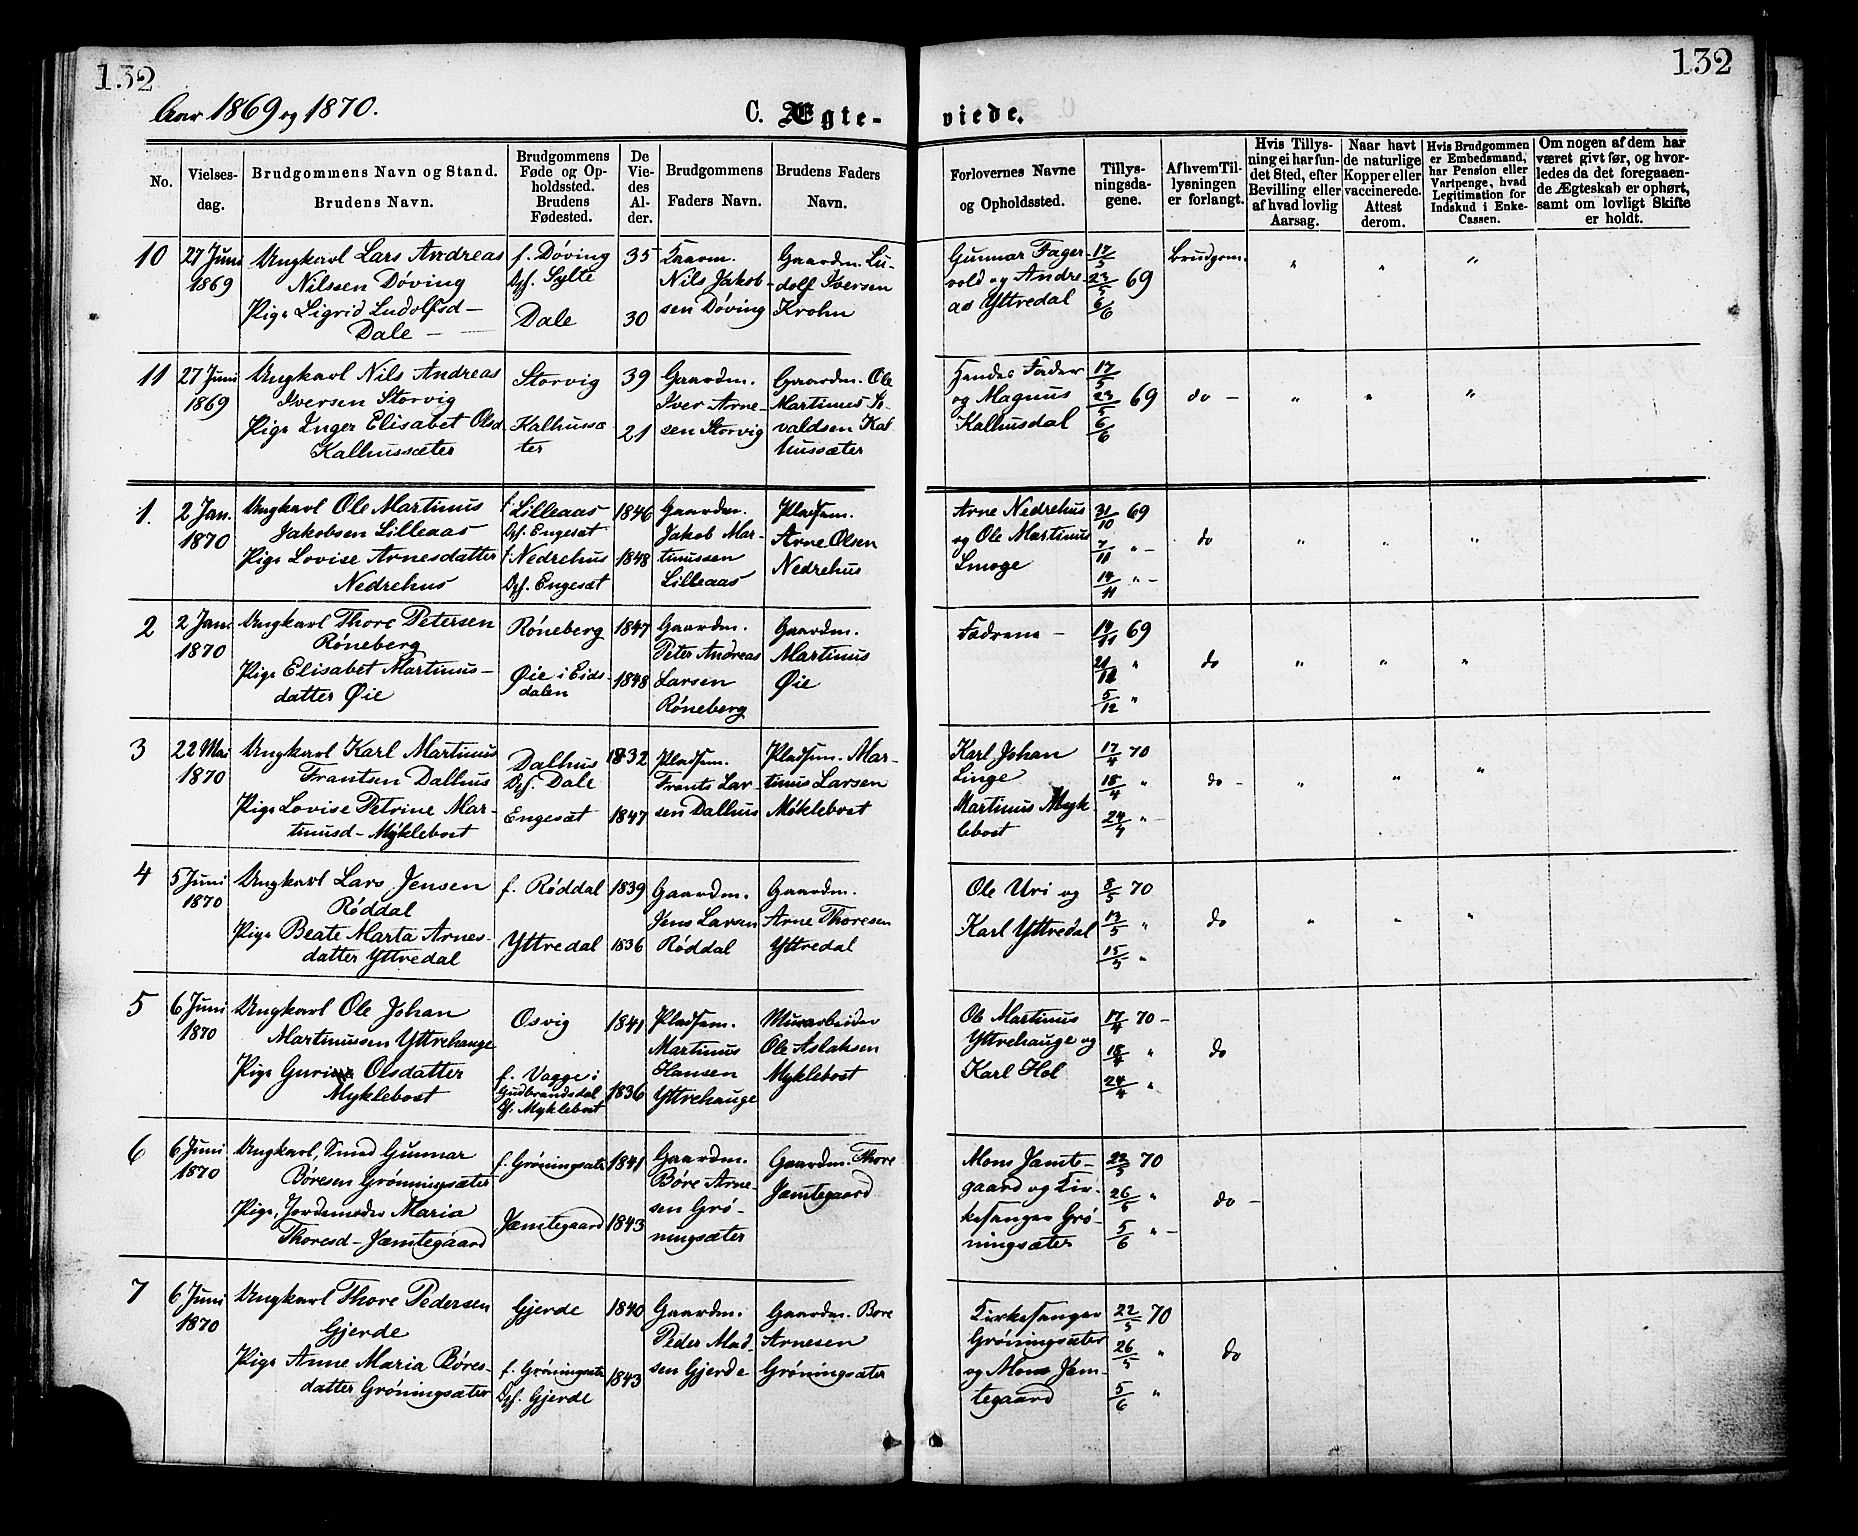 132
132
Aar 1869 og 1870.
C. Ægte-
viede.
No.
Vielses-
dag.
Brudgommens Navn og Stand.
Brudens Navn.
Brudgommens
Føde og Op-
holdssted.
Brudens
Fødested.
De
Vie-
des
Al-
der.
Brudgommens
Faders Navn.
Brudens Faders
Navn.
Forlovernes Navne
og Opholdssted.
Tillys-
ningsda-
gene.
Af hvem Til-
lysningen
er forlangt.
Hvis Tillys-
ning ei har fun-
det Sted, efter
Bevilling eller
af hvad lovlig
Aarsag.
Naar havt
de naturlige
Kopper eller
vaccinerede.
Attest
derom.
Hvis Brudgommen
er Embedsmand,
har Pension eller
Vartpenge, hvad
Legitimation for
Indskud i Enke-
Cassen.
Om nogen af dem har
været givt før, og hvor-
ledes da det foregaaen-
de Ægteskab er ophørt,
samt om lovligt Skifte
er holdt.
10
27 Juni
1869
Ungkarl Lars Andreas
Nilssen Døving
Pige Sigrid Ludolfsd-
Dale -
f. Døving
Opf. Sylte
Dale
35
30
Gaardm.
Nils Jakob-
sen Døving
Gaardm. Lu-
dolf Iversen
Krohn
Gunnar Fager-
vold og Andre-
as Yttredal
17/5
23/5 69
6/6
Brudgom.
" " "
11
27 Juni
1869
Ungkarl Nils Andreas
Iversen Storvig
Pige Inger Elisabet Olsd
Kalhussæter
Storvig
Kalhussæ
ter
39
21
Gaardm.
Iver Arne-
sen Storvig
Gaardm. Ole
Martinus Si-
valdsen Kal
hussæter
Hendes Fader
og Magnus
Kalhusdal
17/5
23/5 69
6/6
do -
" " "
1.
2 Jan.
1870
Ungkarl Ole Martinus
Jakobsen Lilleaas
Pige Lovise Arnesdatter
Nedrehus
f. Lilleaas
Opf. Engesæt
f. Nedrehus
Opf. Engesæt
1846
1848
Gaardm.
Jakob Mar-
tinussen
Lilleaas
Pladsm.
Arne Olsen
Nedrehus
Arne Nedrehus
og Ole Martinus
Smoge
31/10 69
7/11 " -
14/11 " -
do
" " "
2
2 Jan.
1870
Ungkarl Thore Petersen
Røneberg
Pige Elisabet Martinus-
datter Øie
Røneberg
Øie i Eids-
dalen
1847
1848
Gaardm.
Peter Andreas
Larsen
Røneberg
Gaardm.
Martinus
Øie
Fædrene -
14/11 69
21/11 "
5/12 "
do
" " "
3
22 Mai
1870
Ungkarl Karl Martinus
Frantsen Dalhus
Pige Lovise Petrine Mar-
tinusd- Myklebost
Dalhus
Opf. Dale
Engesæt
1832
1847
Pladsm.
Frants Lar
sen Dalhus
Pladsm. Mar-
tinus Larsen
Myklebost
Karl Johan
Linge
Martinus Myk-
lebost
17/4 70
18/4 "
24/4 "
do -
" " "
4
5 Juni
1870
Ungkarl Lars Jensen
Røddal
Pige Beate Marta Arnes-
datter Yttredal
f. Røddal
Yttredal
1839
1836
Gaardm.
Jens Larsen
Røddal
Gaardm.
Arne Thoresen
Yttredal
Ole Uri og
Karl Yttredal
8/5 70
13/5 "
15/5 "
do
" " "
5
6 Juni
1870
Ungkarl Ole Johan
Martinussen Yttrehauge
Pige Guri Olsdatter
Myklebost
Osvig
f. Vagge i
Gudbrandsdal
Of. Myklebost
1841
1836
Pladsm.
Martinus
Hansen
Yttrehauge
Murarbeider
Ole Aslaksen
Myklebost
Ole Martinus
Yttrehauge og
Karl Hol
17/4 70 -
18/4 "
24/4 "
do
6
6 Juni
1870
Ungkarl, Smed Gunnar
Børesen Grønningsæter
Pige, Jordemoder Maria
Thoresd- Jæmtegaard
f. Grøningsæter
Jæmtegaard
1841
1843
Gaardm.
Børe Arne-
sen Grø-
ningsæter
Gaardm. Thore
Jæmtegaard
Mons Jæmte-
gaard og Kir-
kesanger Grø-
ningsæter
22/5 70
26/5 "
5/6 " -
do -
7
6 Juni
1870
Ungkarl Thore Pedersen
Gjerde
Pige Anne Maria Børes-
datter Grøningsæter
Gjerde
f. Grøningsæter
Opf. Gjerde
1840
1843
Gaardm.
Peder Mad-
sen Gjerde
Gaardm. Børe
Arnesen
Grøningsæter
Kirkesanger
Grøningsæter
og Mons Jæm-
tegaard
22/5 70
26/5 "
5/6 "
do